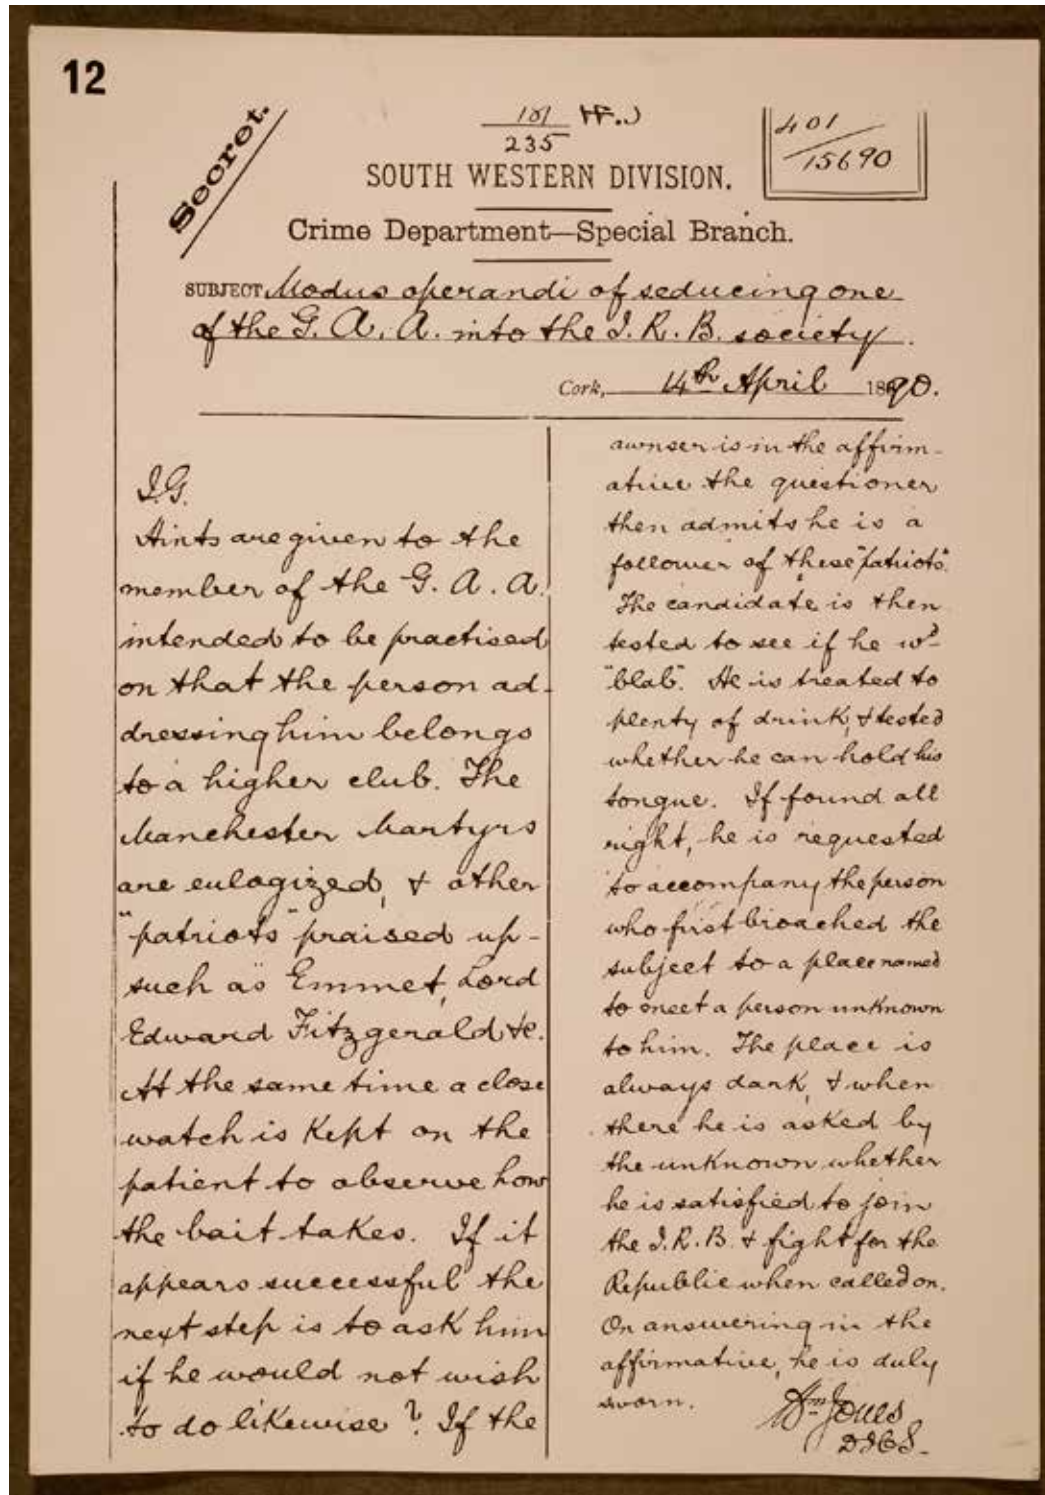 12
Secret.
181
235
401
15690
SOUTH WESTERN DIVISION.
Crime Department—Special Branch.
SUBJECT, Modus operandi of seducing one
of the G. A. A. into the I. R. B. society.
Cork, 14th April 1890.
I.G.
Hints are given to the
member of the G. A. A.
intended to be practised
on that the person ad-
dressing him belongs
to a higher club. The
Manchester Martyrs
are eulogized, & other
"patriots" praised up-
such as Emmet, Lord
Edward Fitzgerald &c.
At the same time a close
watch is kept on the
patient to observe how
the bait takes. If it
appears successful the
next step is to ask him
if he would not wish
to do likewise? If the
awnser is in the affirm-
ative the questioner
then admits he is a
follower of these "patriots".
The candidate is then
tested to see if he wd
"blab". He is treated to
plenty of drink, & tested
whether he can hold his
tongue. If found all
right, he is requested
to accompany the person
who first broached the
subject to a place named
to meet a person unknown
to him. The place is
always dark, & when
there he is asked by
the unknown whether
he is satisfied to join
the I. R. B. & fight for the
Republic when called on.
On answering in the
affirmative, he is duly
sworn.
Wm Jones